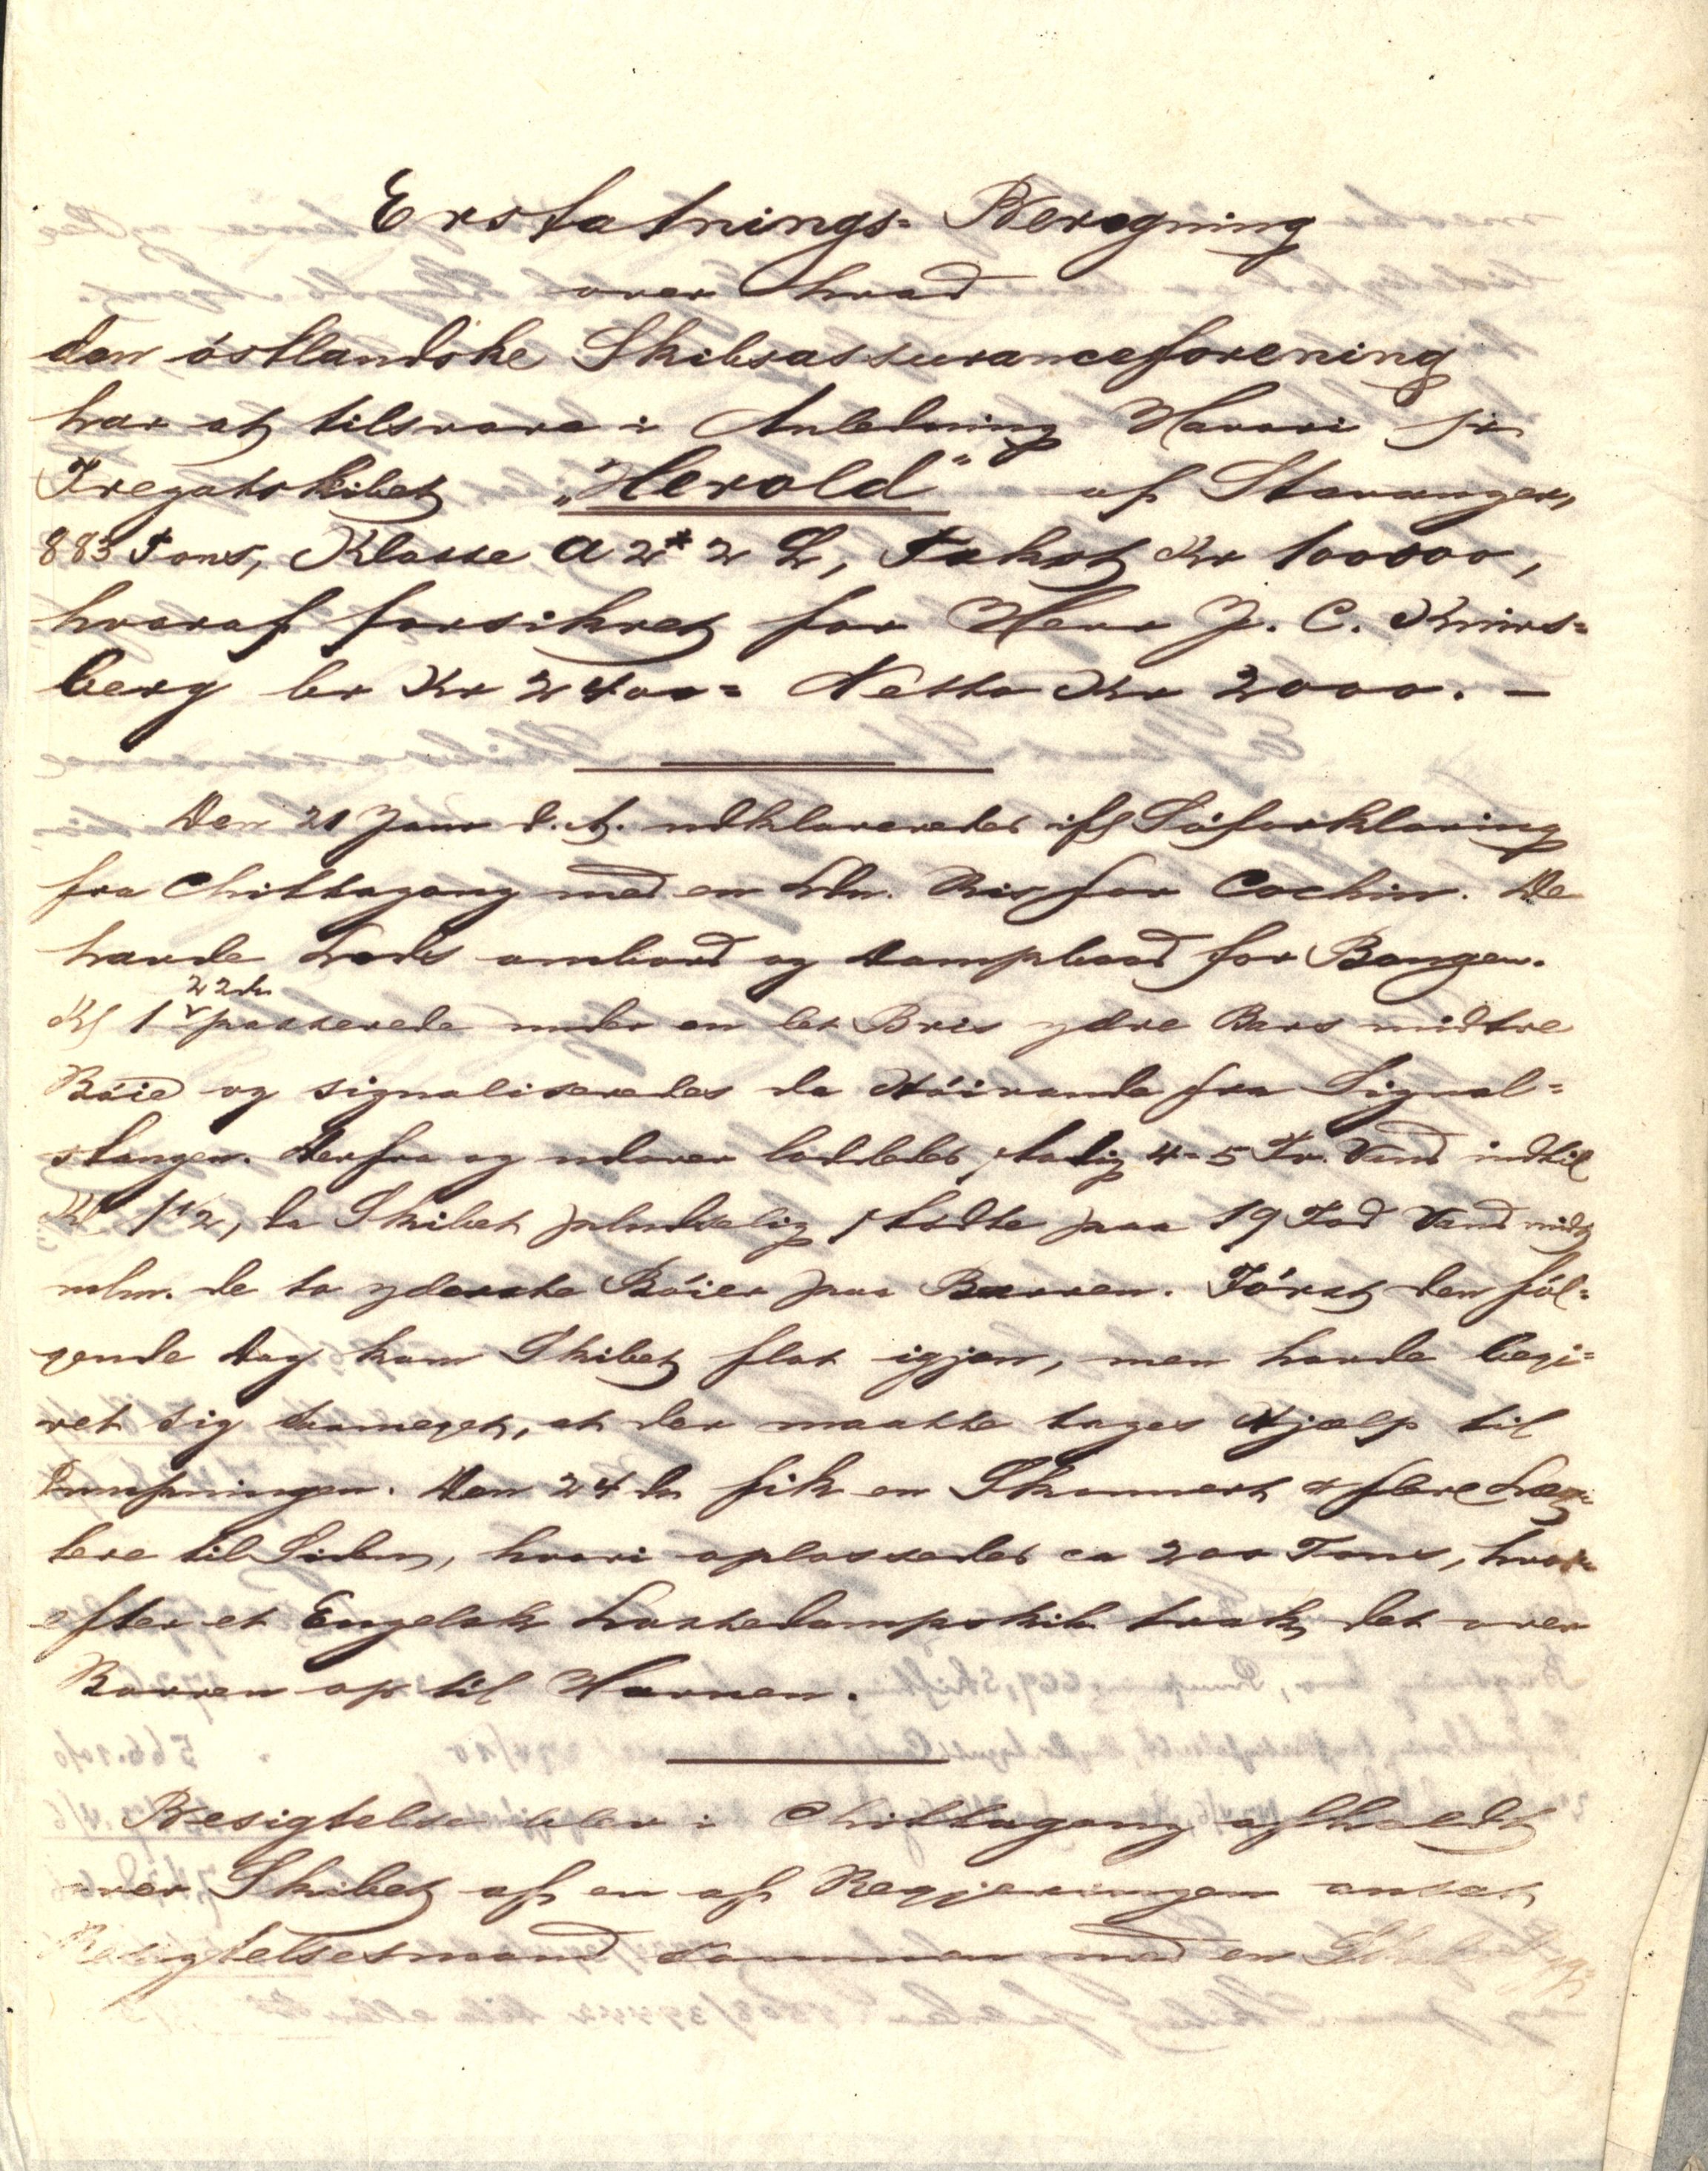 Erstatnings-Beregning
over hvad
den östlandske Skibsassuranceforening
har at tilsvare i Anledning Havari
Fregatskibet „Herold" af Stavanger,
883 Tons, Klasse A 2* 2 L, Takst Kr 100000,
hvoraf forsikret for Herr J. C. Knirs=
berg br Kr 2400= Netto Kr 2000. –
Den 21 Janr d. A. udklareredes ifl Söforklaring
fra Chittagong med en Ldn. Ris for Cochin. De
havde Lods ombord og Dampbaad for Bougen.
22de
Kl 1 passerede under en let Bris ydre Bars midtre
Böie og signaliseredes da Höivande fra Signal=
stangen. Derfra og udover loddedes stadig 4-5 Fv. Vand indtil
Kl 1 1/2, da Skibet pludselig stödte paa 19 Fod Vand midt
mlm. de to yderste Böier paa Barren. Först den föl=
gende Dag kom Skibet flot igjen, men havde begi=
vet sig saameget, at der maatte tages Hjælp til
Pumpningen. Den 24de fik en Skonnert & flere Læg=
tere til Siden, hvori oplossedes ca 200 Tons, hvor=
efter et Engelsk Lastedampskib trak det over
Barren op til Havnen.
Besigtelse blev i Chittagong afholdt
over Skibet af en af Regjeringen ansat
Besigtelsesmand sammen med en